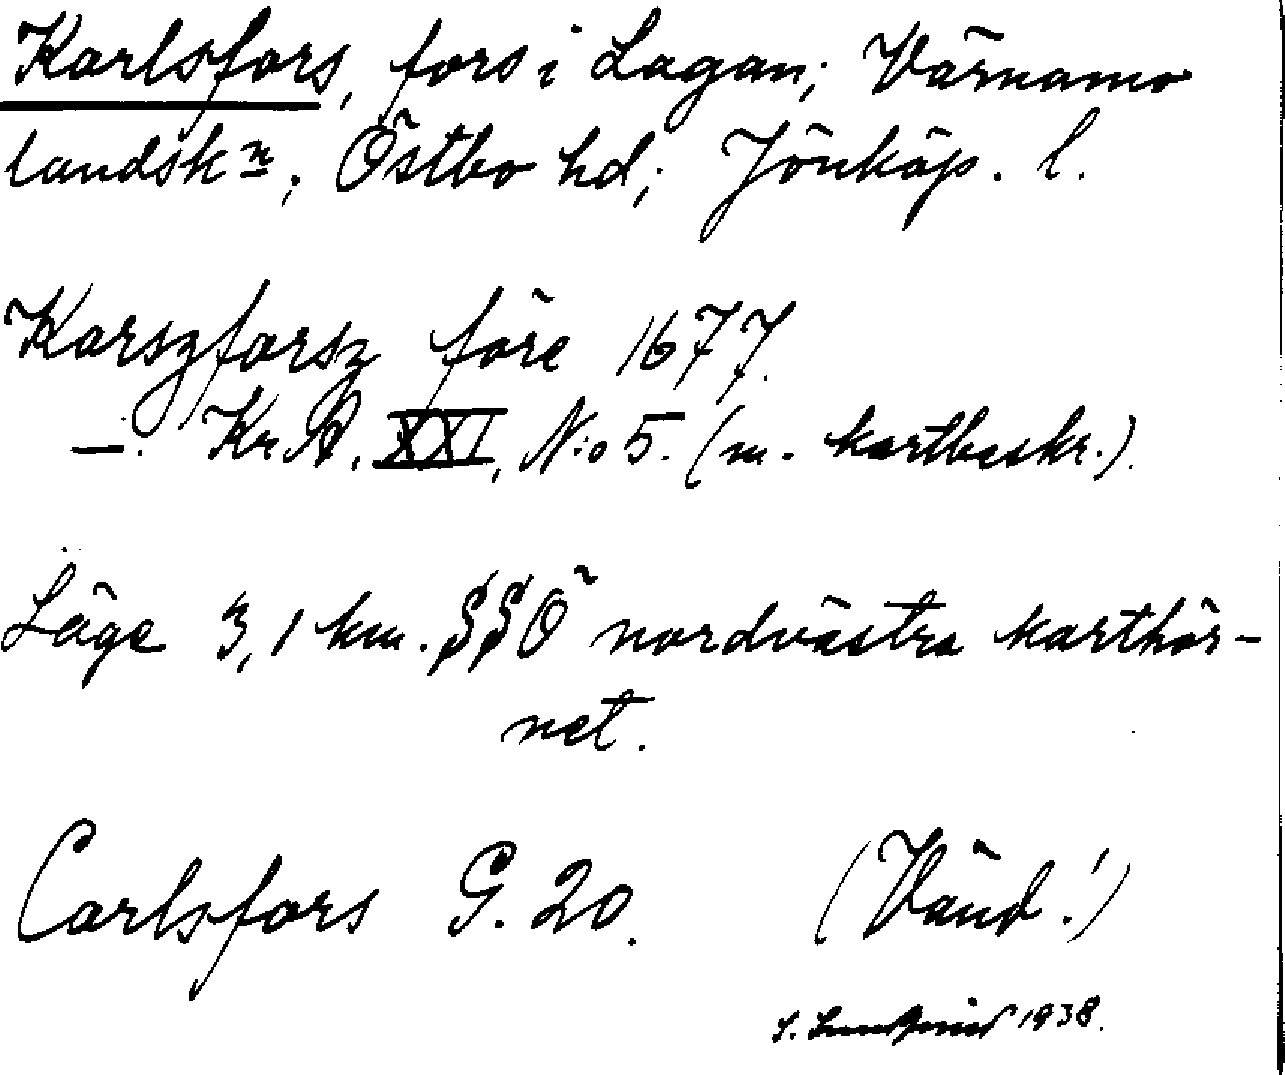 Karlsfors, fors i Lagan; Värnamo
landskn; Östbo hd; Jönköp. l.
Karszforsz före 1677.
—. Kr. A. XXI, N:o 5. (m. kartbeskr.).
Läge 3,1 km. SSÖ nordvästra karthör-
net.
Carlsfors G. 20. (Vänd!)
1938.